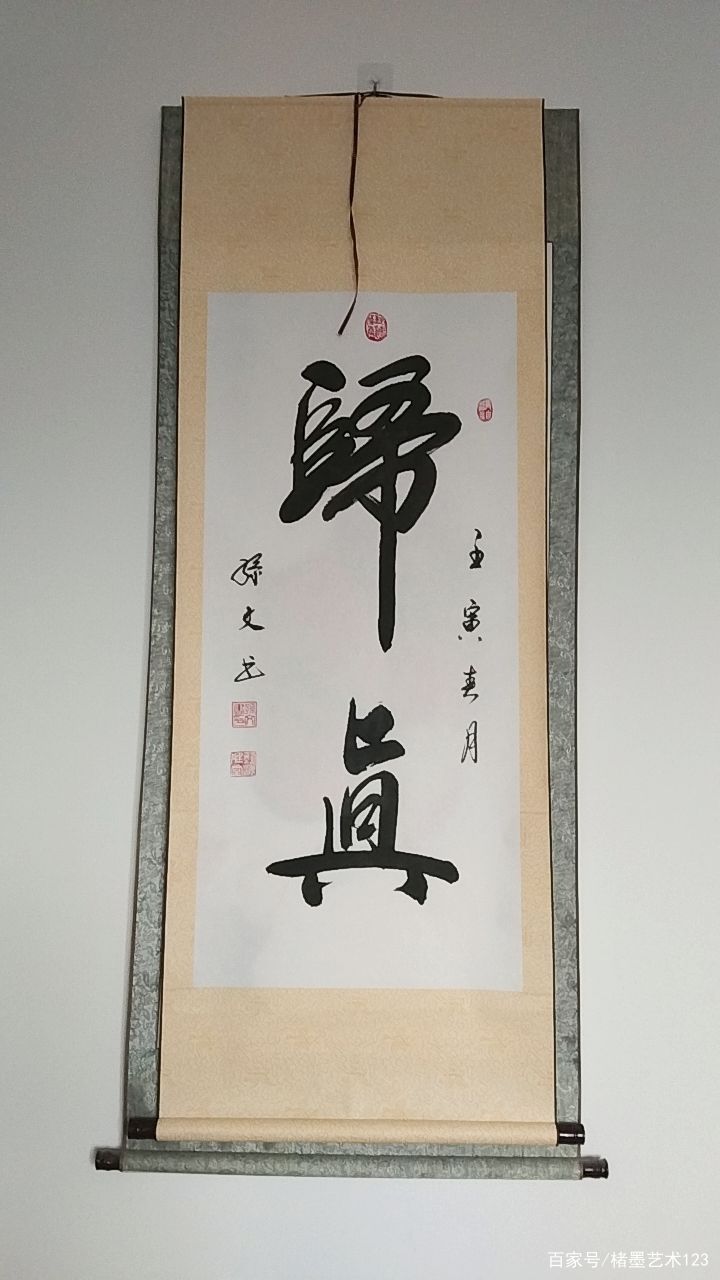 歸眞
壬寅春月
孫文
百家号/楮墨艺术123